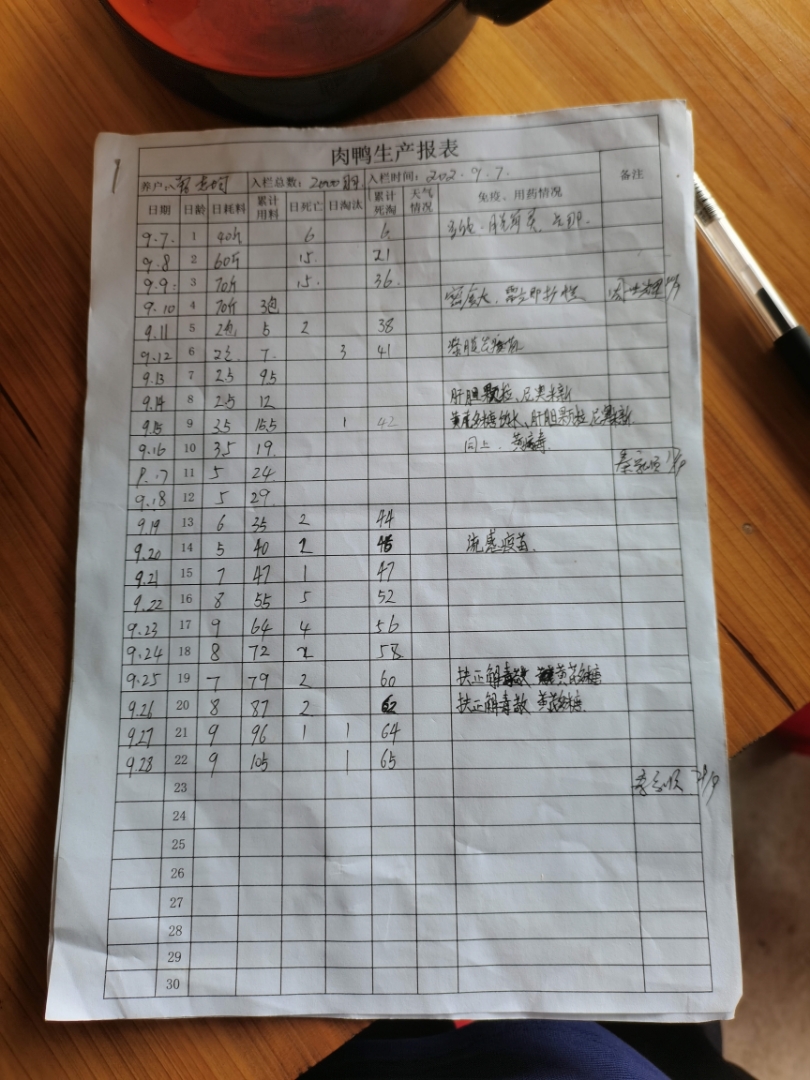 肉鸭生产报表
养户: 入栏总数: 2000 入栏时间: 202 . 9. 7. 备注
日期 日龄 日耗料 累计用料 日死亡 日淘汰 累计死淘 天气情况 免疫、用药情况
9.7. 1 40斤 6 6
9.8 2 60斤 15. 21
9.9. 3 70斤 15. 36
9.10 4 70斤 3包
9.11 5 2包 5 2 38
9.12 6 2包 7. 3 41
9.13 7 2.5 9.5
9.14 8 2.5 12 肝胆颗粒、
9.15 9 3.5 15.5 1 42 肝胆颗粒、
9.16 10 3.5 19. 同上.
9.17 11 5 24.
9.18 12 5 29.
9.19 13 6 35 2 44
9.20 14 5 40 2 46 流感疫苗.
9.21 15 7 47 1 47
9.22 16 8 55 5 52
9.23 17 9 64 4 56
9.24 18 8 72 2 58
9.25 19 7 79 2 60 扶正解毒散 黄芪多糖
9.26 20 8 87 2 62 扶正解毒散 黄芪多糖
9.27 21 9 96 1 1 64
9.28 22 9 105 1 65
23 28/9
24
25
26
27
28
29
30